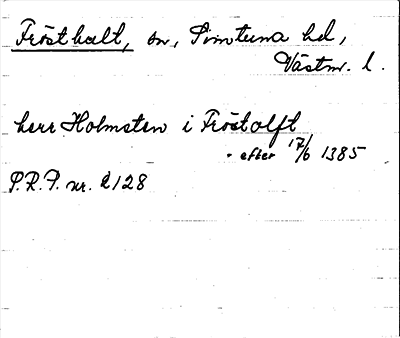 Frösthult, sn, Simtuna hd,
Västm. l.
herr Holmsten i Fröstolft
efter 17/6 1385
P.R.P. nr. 2128